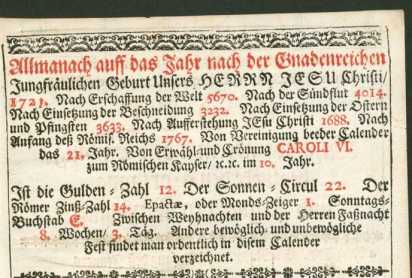 Allmanach auff das Jahr nach der Gnadenreichen
Jungfräulichen Geburt Unsers HERRN JESU Christi/
1721. Nach Erschaffung der Welt 5670. Nach der Sündflut 4014.
Nach Einsetzung der Beschneidung 3232. Nach Einsetzung der Ostern
und Pfingsten 3633. Nach Aufferstehung JEsu Christi 1688. Nach
Anfang deß Römis. Reichs 1767. Von Vereinigung beeder Calender
das 21. Jahr. Von Erwähl- und Crönung CAROLI VI.
zum Römischen Kayser/ ꝛc. ꝛc. im 10. Jahr.
Ist die Gulden-Zahl 12. Der Sonnen-Circul 22. Der
Römer Zinß-Zahl 14. Epactæ, oder Monds-Zeiger 1. Sonntags-
Buchstab E. Zwischen Weyhnachten und der Herren Faßnacht
8. Wochen/ 3. Täg. Andere bewöglich- und unbewögliche
Fest findet man ordentlich in disem Calender
verzeichnet.